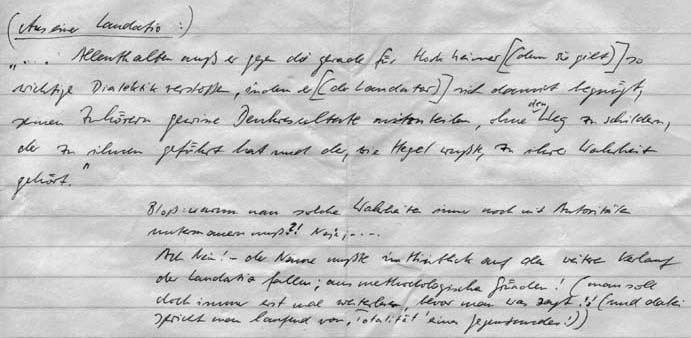 (Aus einer Laudatio:)
"... Allenthalben muß er gegen die gerade für Horkheimer [(dem sie gilt)] so
wichtige Dialektik verstoßen, indem er [(der Laudator)] sich damit begnügt,
seinen Zuhörern gewisse Denkresultate mitzuteilen, ohne den Weg zu schildern,
der zu ihnen geführt hat und der, wie Hegel wußte, zu ihrer Wahrheit
gehört."
Bloß: warum man solche Wahrheiten immer noch mit Autoritäten
untermauern muß?! Naja, -.-.
Ach Nein! - der Name mußte im Hinblick auf den weiteren Verlauf
der Laudatio fallen; aus methodologischen Gründen! (man soll
doch immer erst mal weiterlesen, bevor man was sagt!! (und dabei
spricht man laufend von 'Totalität' eines Gegenstandes!))